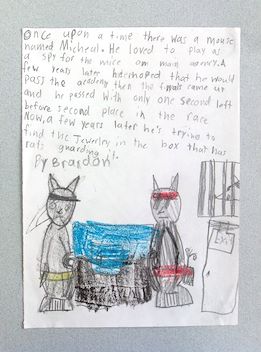 Once upon a time there was a mouse
named Micheal. He loved to play as
a spy for the mice am main agency. A
few years later he hoped that he would
pass the academy then the finals came up
and he passed with only one second left
before second place in the race
Now, a few years later he's trying to
find the Jewelry in the box that has
rats guarding it.
By Brandon